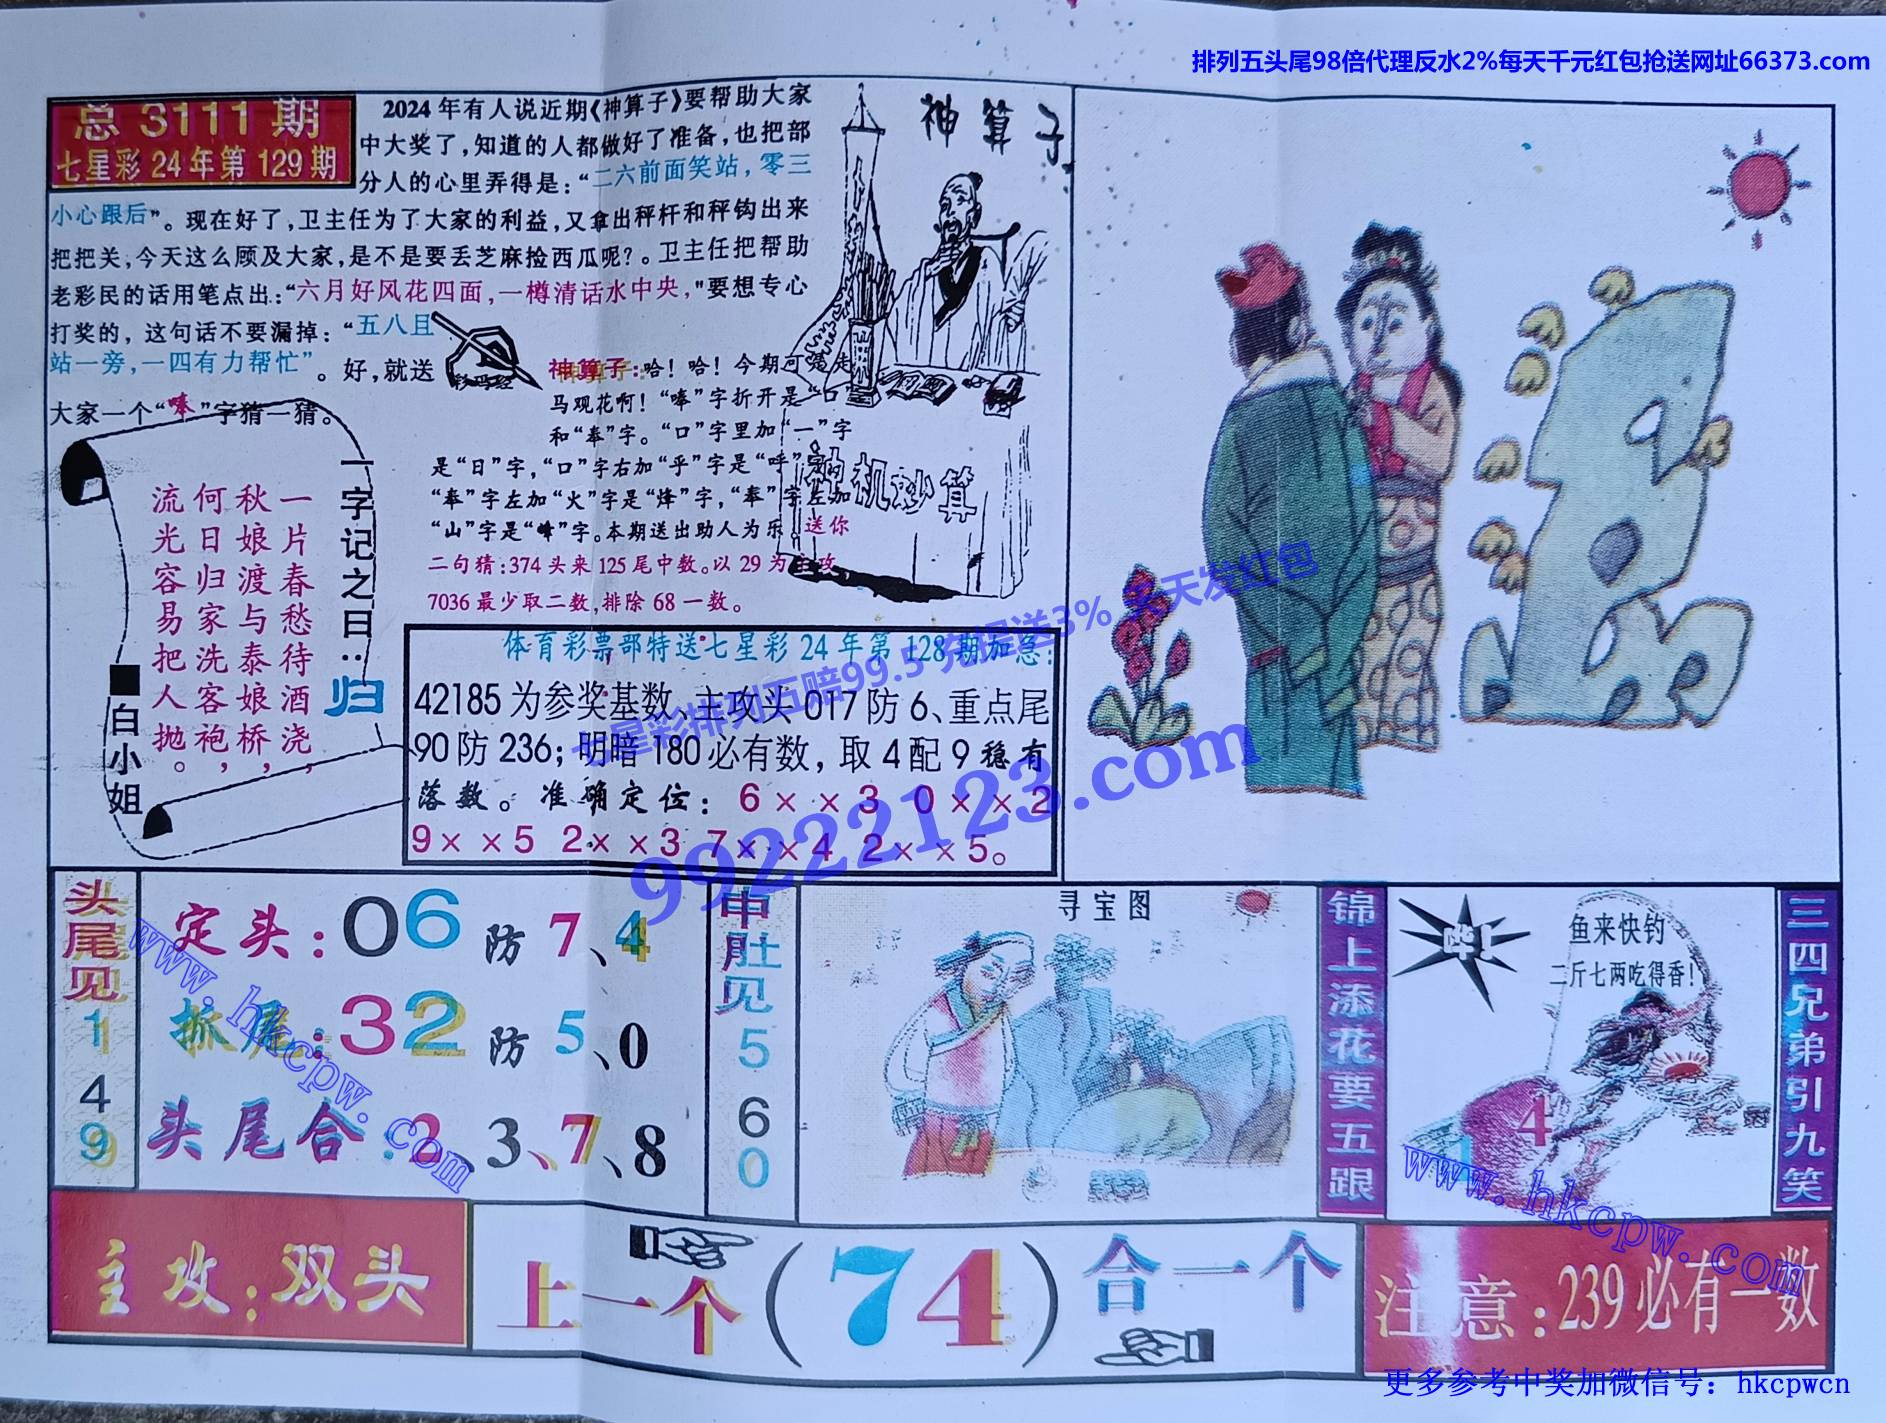 排列五头尾98倍代理反水2%每天千元红包抢送网址66373.com
总 3111 期
七星彩 24 年第 129 期
2024 年有人说近期《神算子》要帮助大家
中大奖了，知道的人都做好了准备，也把部
分人的心里弄得是：“二六前面笑站，零三
小心跟后”。现在好了，卫主任为了大家的利益，又拿出秤杆和秤钩出来
把把关，今天这么顾及大家，是不是要丢芝麻捡西瓜呢？。卫主任把帮助
老彩民的话用笔点出：“六月好风花四面，一樽清话水中央，”要想专心
打奖的，这句话不要漏掉：“五八且
站一旁，一四有力帮忙”。好，就送
大家一个“唪”字猜一猜。
神算子
神算子：哈！哈！今期可是走
马观花啊！“唪”字折开是“口”
和“奉”字。“口”字里加“一”字
是“日”字，“口”字右加“乎”字是“呼”字
“奉”字左加“火”字是“烽”字，“奉”字左加
“山”字是“峰”字。本期送出助人为乐 送你
二句猜：374 头来 125 尾中数。以 29 为主攻
7036 最少取二数，排除 68 一数。
神机妙算
一字记之曰：归
一片春愁待酒浇，
秋娘渡与泰娘桥，
何日归家洗客袍，
流光容易把人抛。
■白小姐
体育彩票部特送七星彩 24 年第 128 期加急：
42185 为参奖基数、主攻头 017 防 6、重点尾
90 防 236；明暗 180 必有数，取 4 配 9 稳有
落数。准确定位：6××3 0××2
9××5 2××3 7××4 2××5。
七星彩排列五赔99.5 充提送3% 天天发红包
99222123.com
头尾见149
定头：06 防 7、4
抓尾：32 防 5、0
头尾合：2、3、7、8
中肚见560
寻宝图
锦上添花要五跟
哗！
鱼来快钓
二斤七两吃得香！
4
1
三四兄弟引九笑
www.hkcpw.com
www.hkcpw.com
主攻：双头
上一个（74）合一个
注意：239必有一数
更多参考中奖加微信号：hkcpwcn